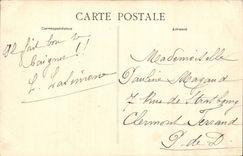 CARTE POSTALE
Correspondance
Adresse
Il fait bon se
baigner!!
Mademoiselle
Pauline Mazaud
7 Rue de
Clermont Ferrand
P. de D.